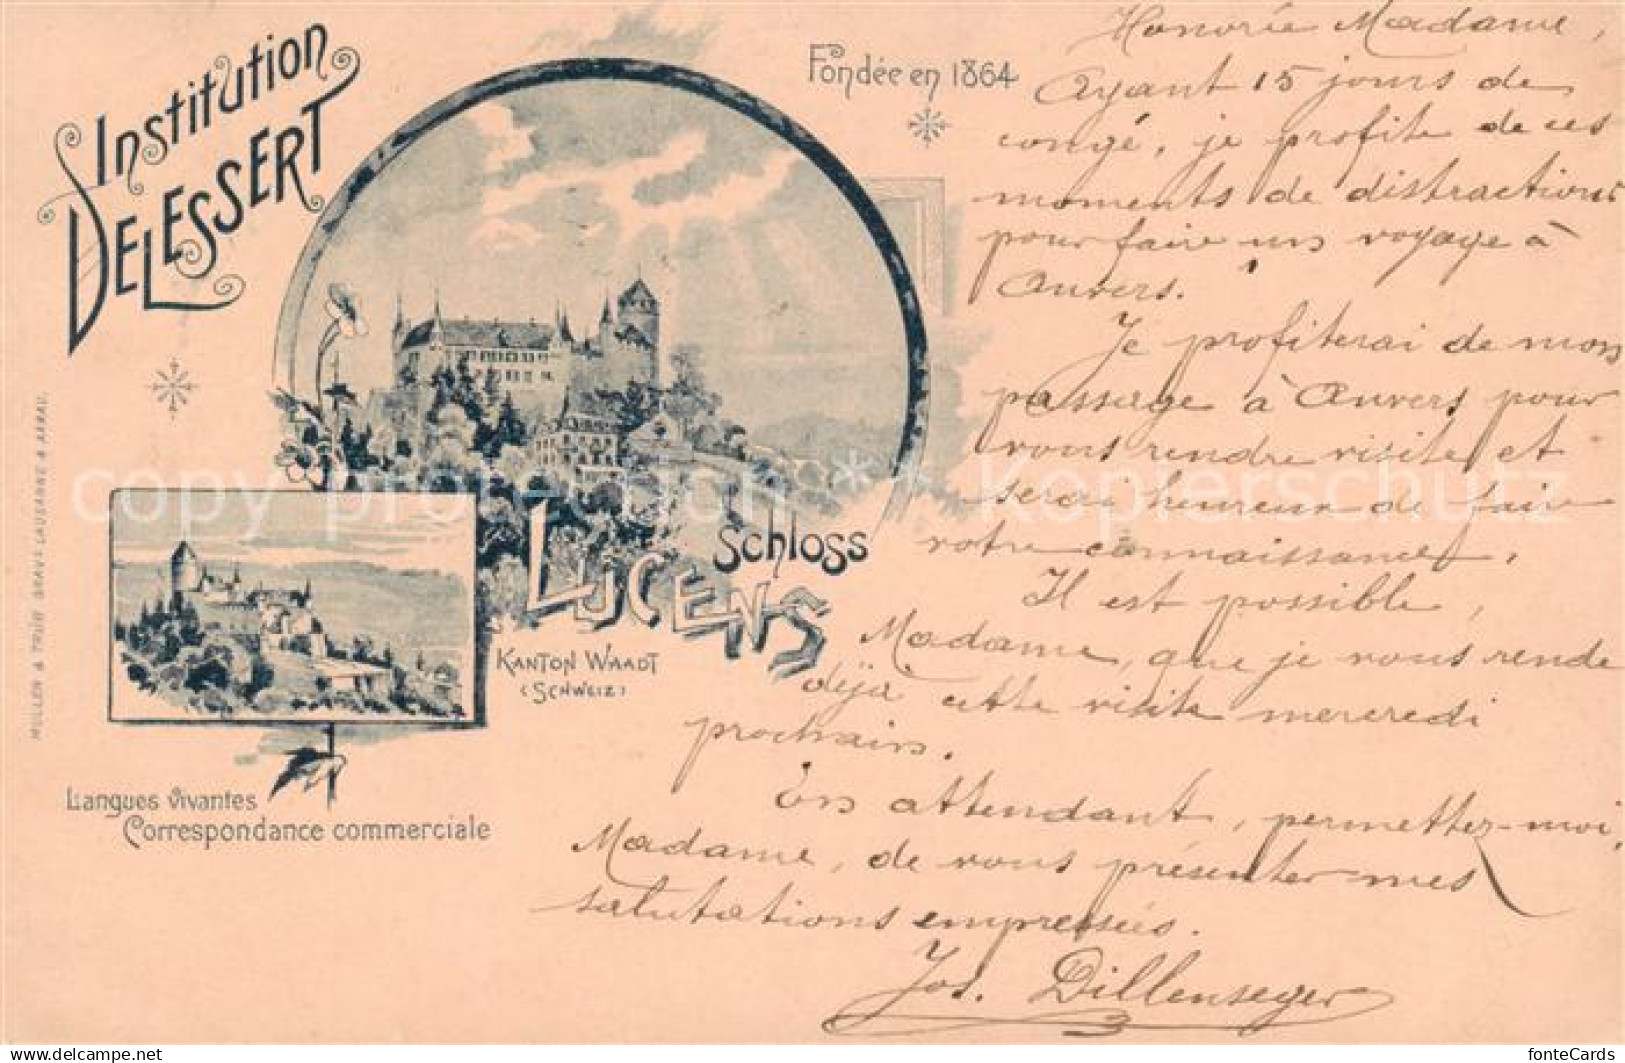 Institution
DELESSERT
Fondée en 1864
Schloss
LUCENS
KANTON WAADT
(SCHWEIZ)
Langues vivantes
Correspondance commerciale
MÜLLER & TRÜB GRAV. LAUSANNE & AARAU.
Honorée Madame,
Ayant 15 jours de
congé, je profite de ces
moments de distractions
pour faire un voyage à
Anvers.
Je profiterai de mon
passage à Anvers pour
vous rendre visite et
serai heureux de faire
votre connaissance.
Il est possible,
Madame, que je vous rende
déjà cette visite mercredi
prochain.
En attendant, permettez-moi,
Madame, de vous présenter mes
salutations empressées.
Jos. Dillenseger
copy protection * * Kopierschutz
delcampe.net
fonteCards